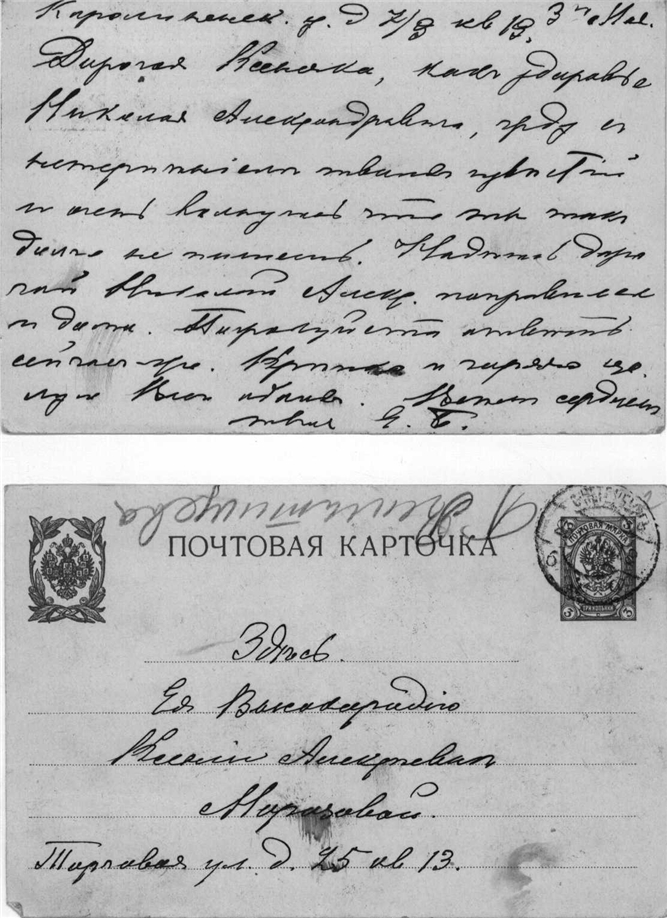 Каролиненск. у. д 7/8 кв 19, 3го Мая.
Дорогая Ксенюшка, какъ здоровье
Николая Александровича, жду съ
нетерпѣніемъ твоихъ
и очень волнуюсь что ты такъ
долго не пишешь. Надѣюсь доро
гой Николай Алекс. поправился
и дома. Пожалуйста отвѣть
сейчас-же. Крѣпко и горячо цѣ-
лую Васъ обоихъ. Всѣмъ сердцемъ
твоя Е. Б.
ПОЧТОВАЯ КАРТОЧКА
ПОЧТОВАЯ МАРКА
3
3
ТРИ КОПѢЙКИ
Здѣсь.
Ея Высокородію
Ксеніи Алексѣевнѣ
Морозовой.
Торговая ул. д. 25 кв 13.